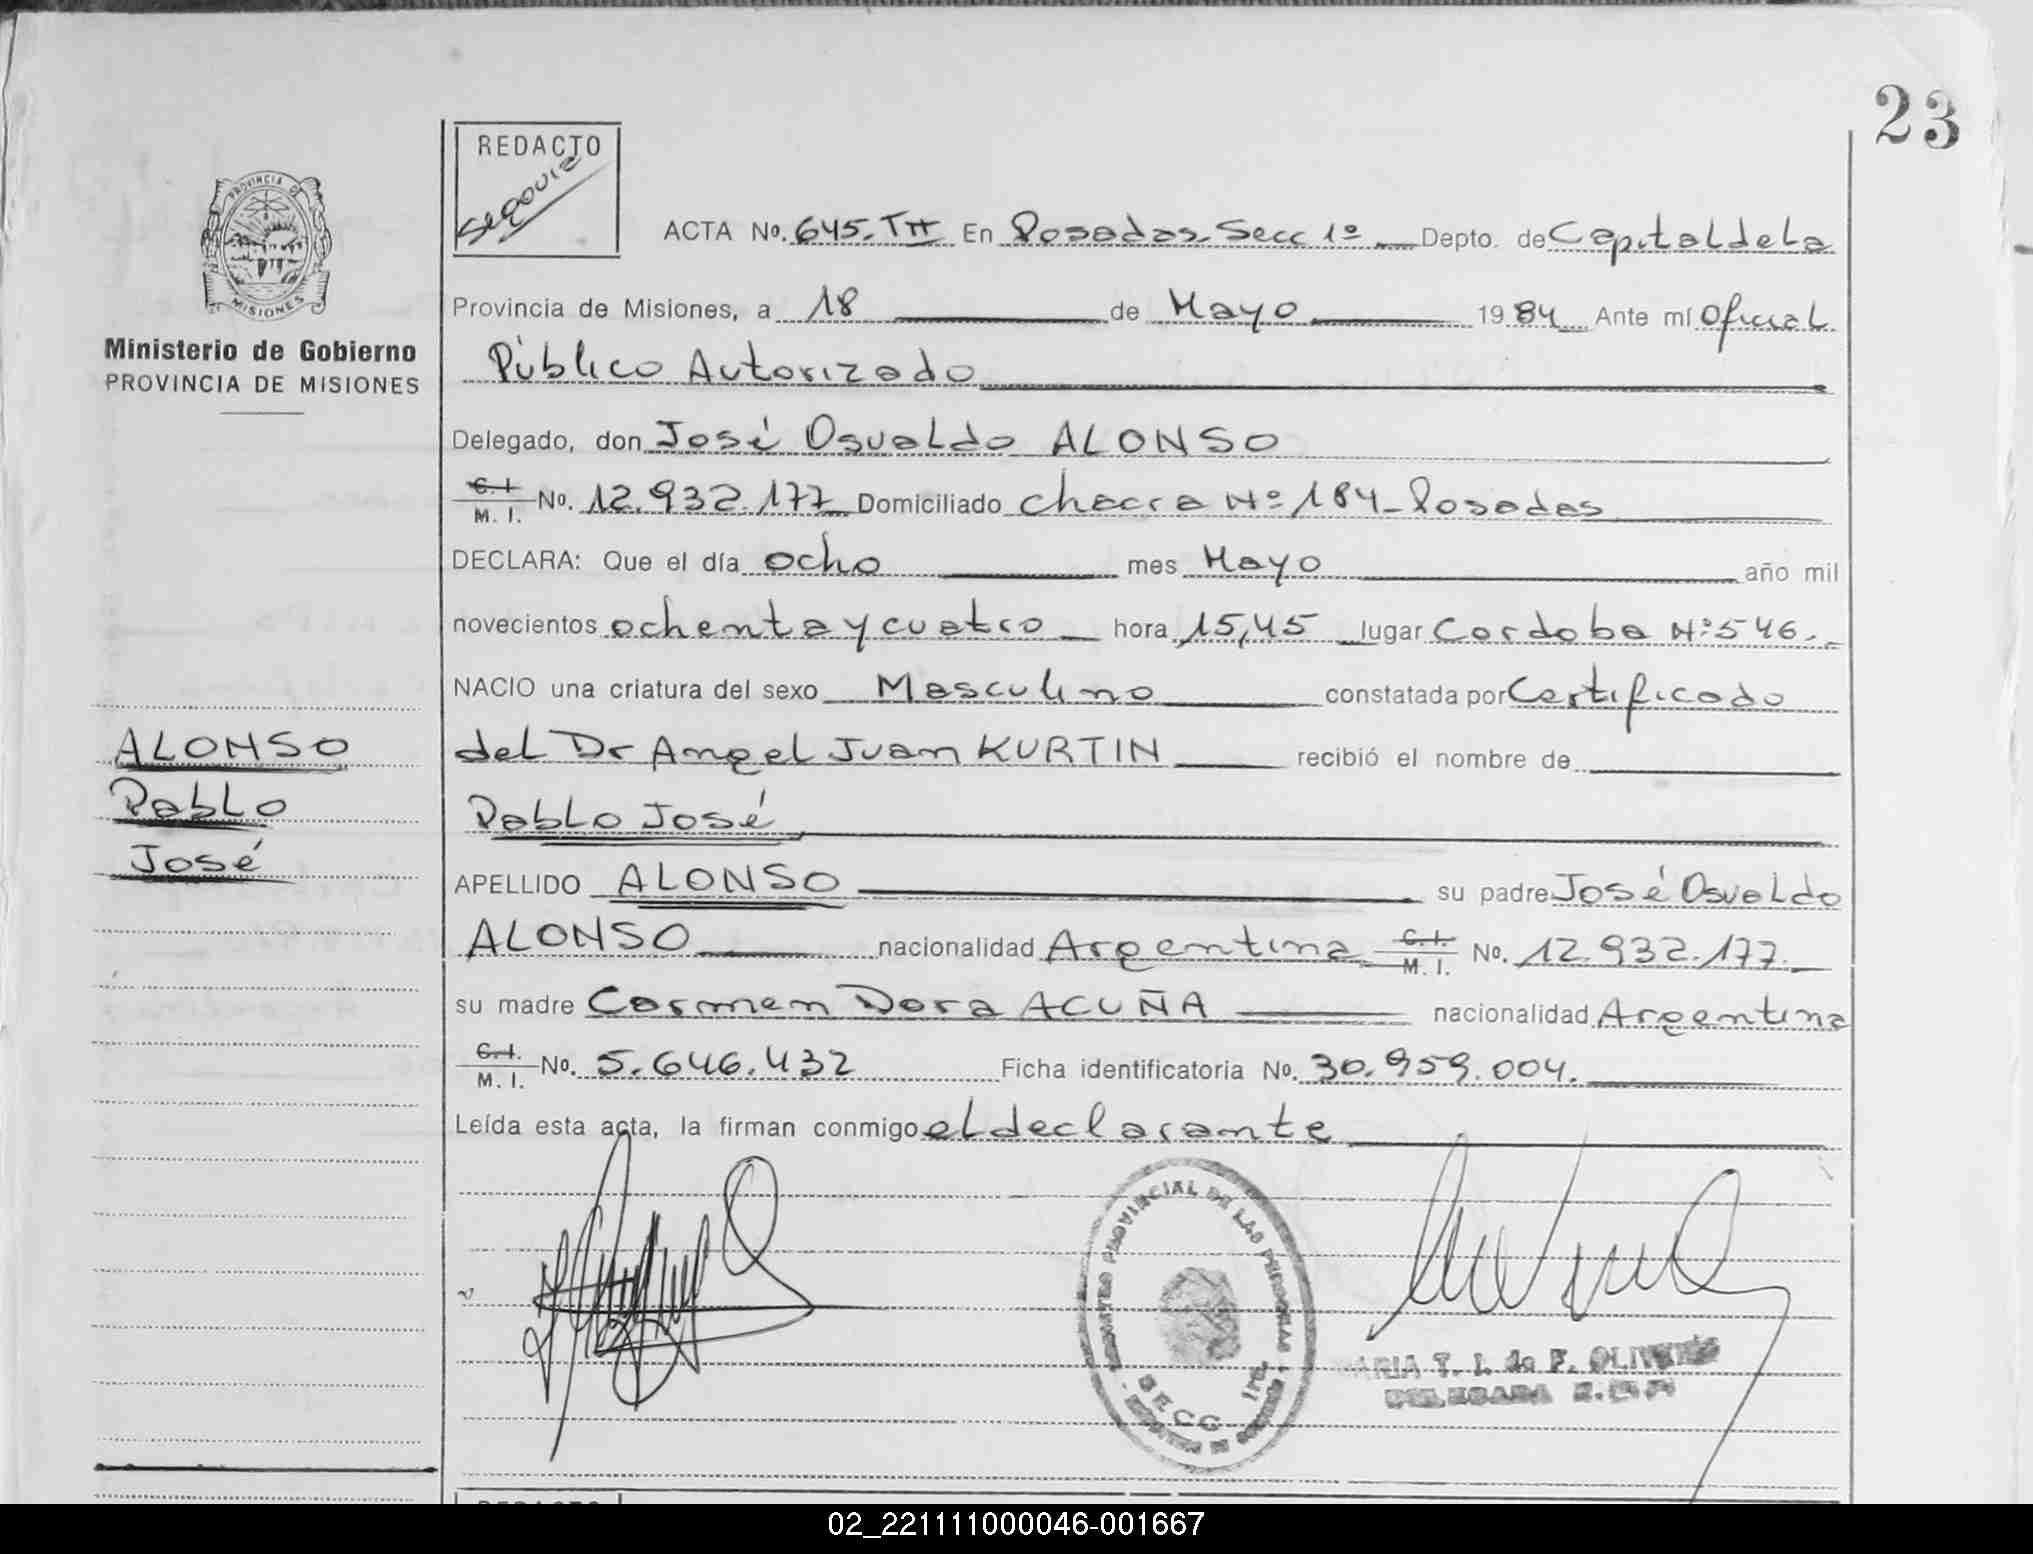 23
REDACTO
Segovia
PROVINCIA DE
MISIONES
Ministerio de Gobierno
PROVINCIA DE MISIONES
ACTA No. 645. TII En Posadas Secc 1º Depto. de Capital de la
Provincia de Misiones, a 18 de Mayo 1984 Ante mí Oficial
Público Autorizado
Delegado, don José Osvaldo ALONSO
C. I. M. I. No. 12.932.177 Domiciliado Chacra Nº 184 - Posadas
DECLARA: Que el día ocho mes Mayo año mil
novecientos ochenta y cuatro hora 15,45 lugar Cordoba Nº 546.
NACIO una criatura del sexo Masculino constatada por Certificado
del Dr Angel Juan KURTIN recibió el nombre de
Pablo José
APELLIDO ALONSO su padre José Osvaldo
ALONSO nacionalidad Argentina C. I. M. I. No. 12.932.177.
su madre Carmen Dora ACUÑA nacionalidad Argentina
C. I. M. I. No. 5.646.432 Ficha identificatoria No. 30.959.004.
Leída esta acta, la firman conmigo el declarante
ALONSO
Pablo
José
PROVINCIAL DE LAS PERSONAS
SECC. 1ra.
MARIA T. I. de F. OLIVERIS
DELEGADA
REDACTO
02_221111000046-001667